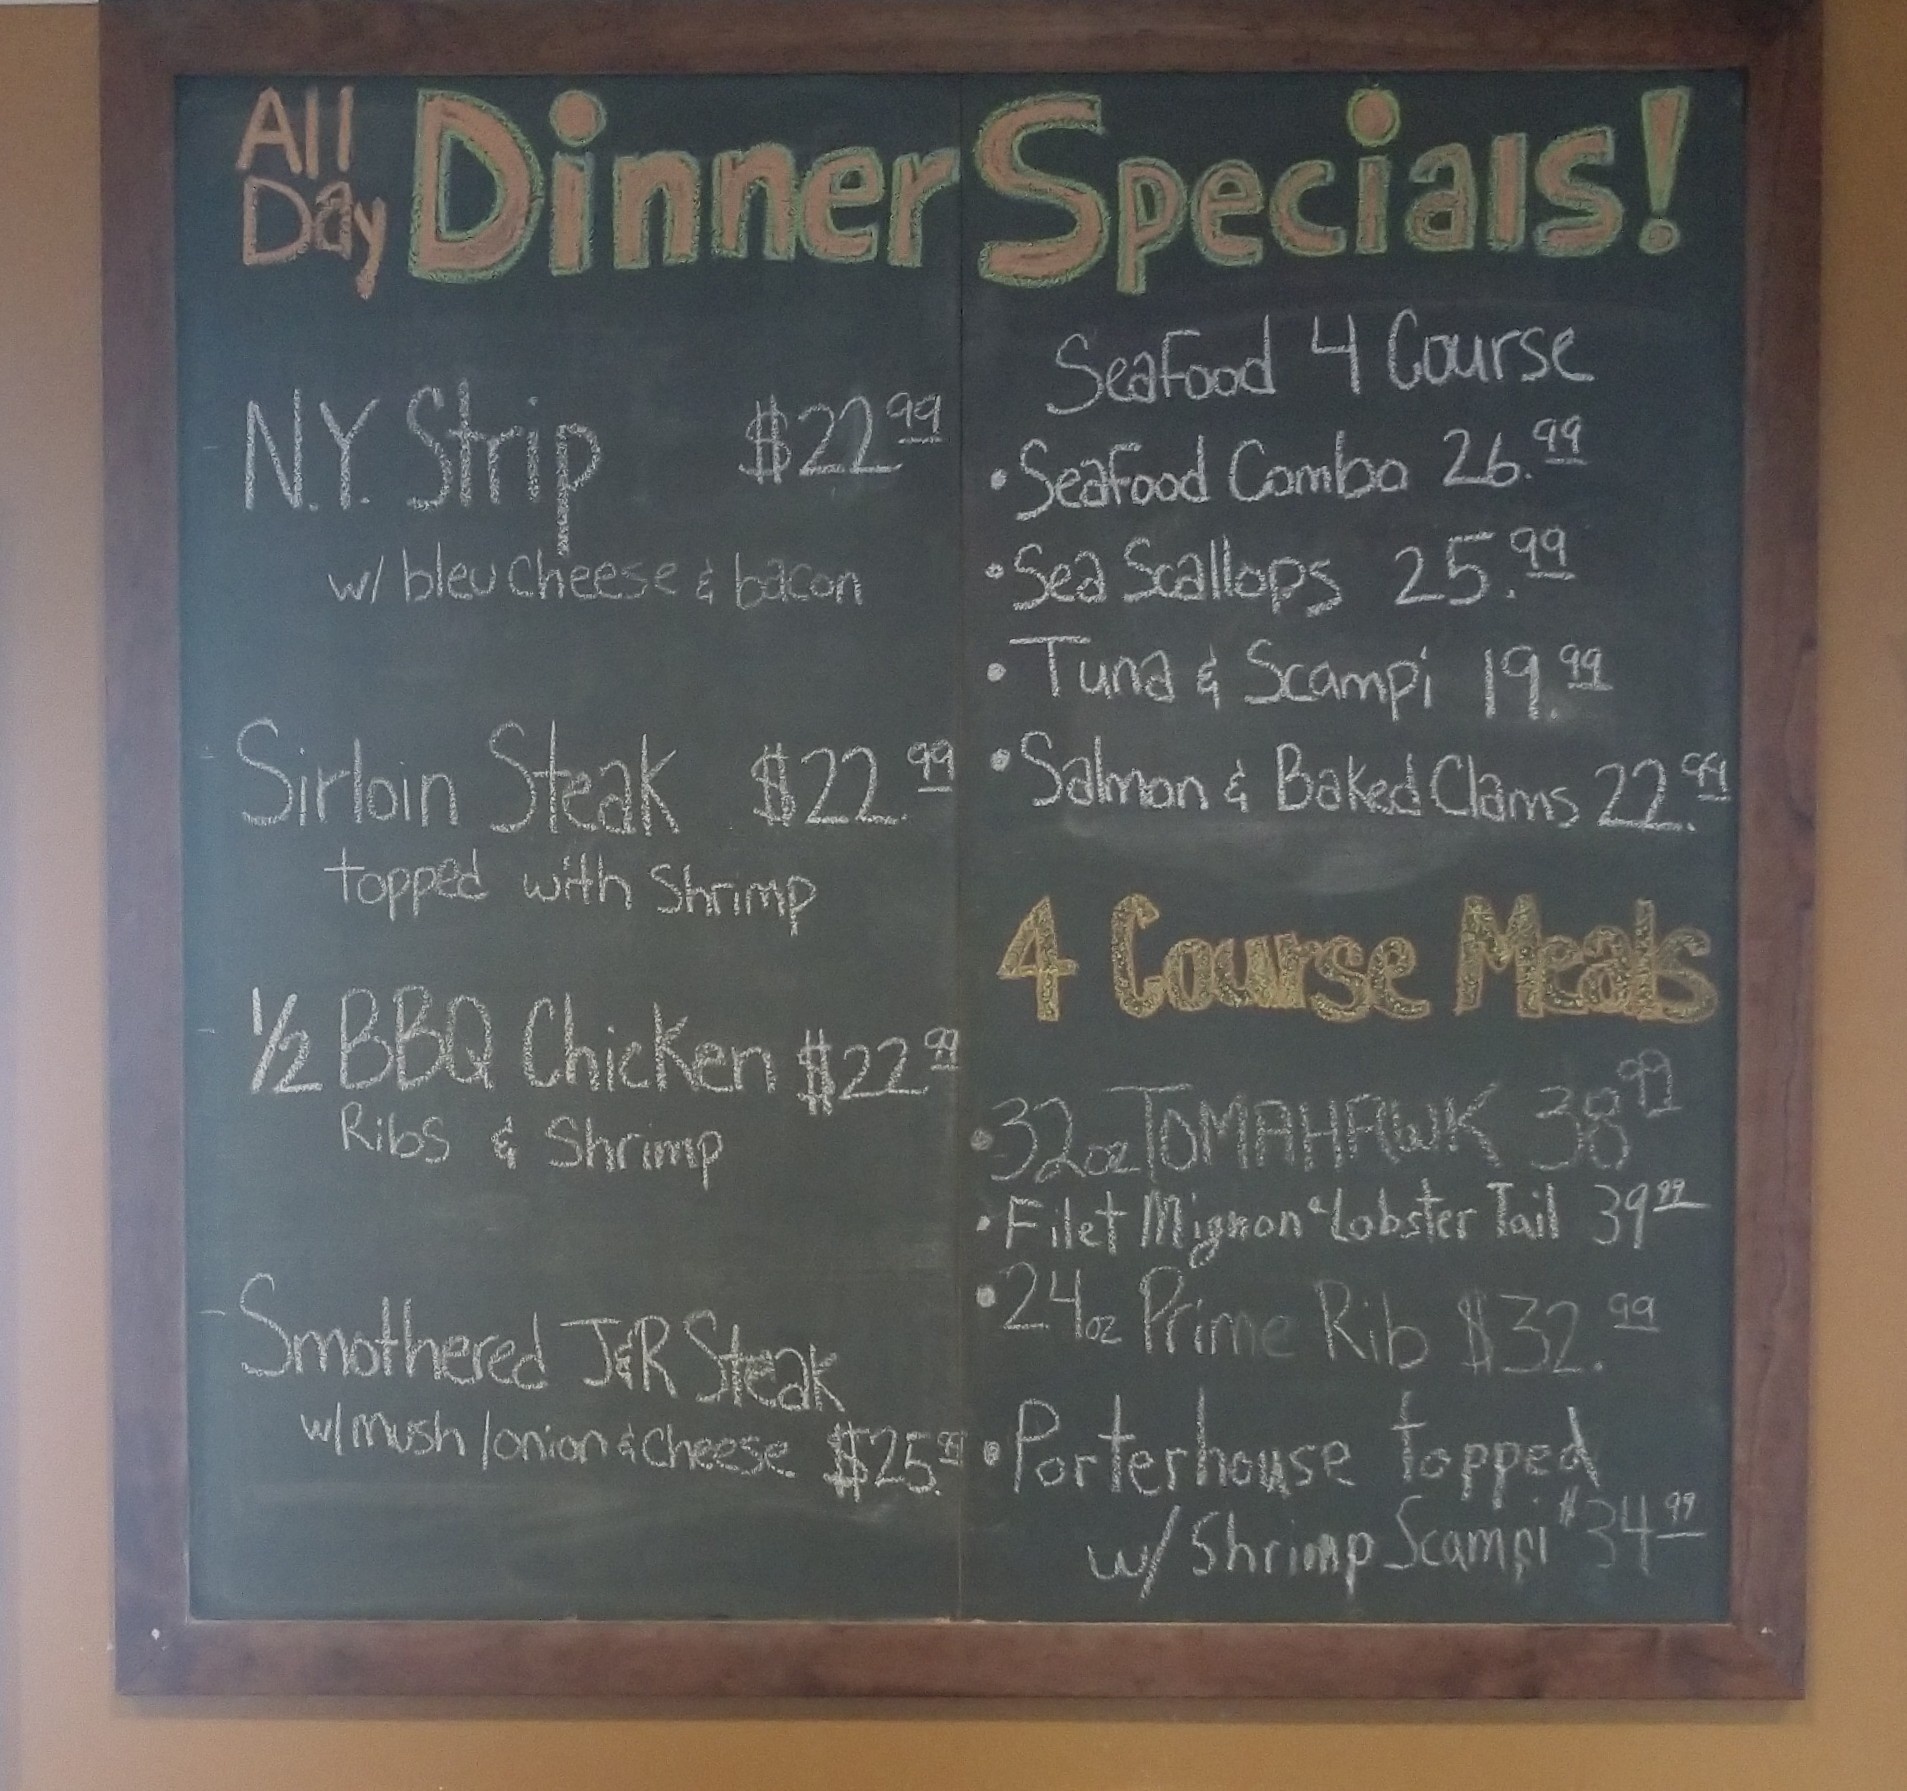 All Day Dinner Specials!
N.Y. Strip $22 99
w/ bleu cheese & bacon
Sirloin Steak $22.99
topped with Shrimp
1/2 BBQ Chicken $22 99
Ribs & Shrimp
Smothered J&R Steak
w/ mush / onion & cheese $25.99
Seafood 4 Course
• Seafood Combo 26.99
• Sea Scallops 25.99
• Tuna & Scampi 19.99
• Salmon & Baked Clams 22.99
4 Course Meals
• 32oz TOMAHAWK 38 99
• Filet Mignon & Lobster Tail 39 99
• 24oz Prime Rib $32.99
• Porterhouse topped
w/ Shrimp Scampi $34 99